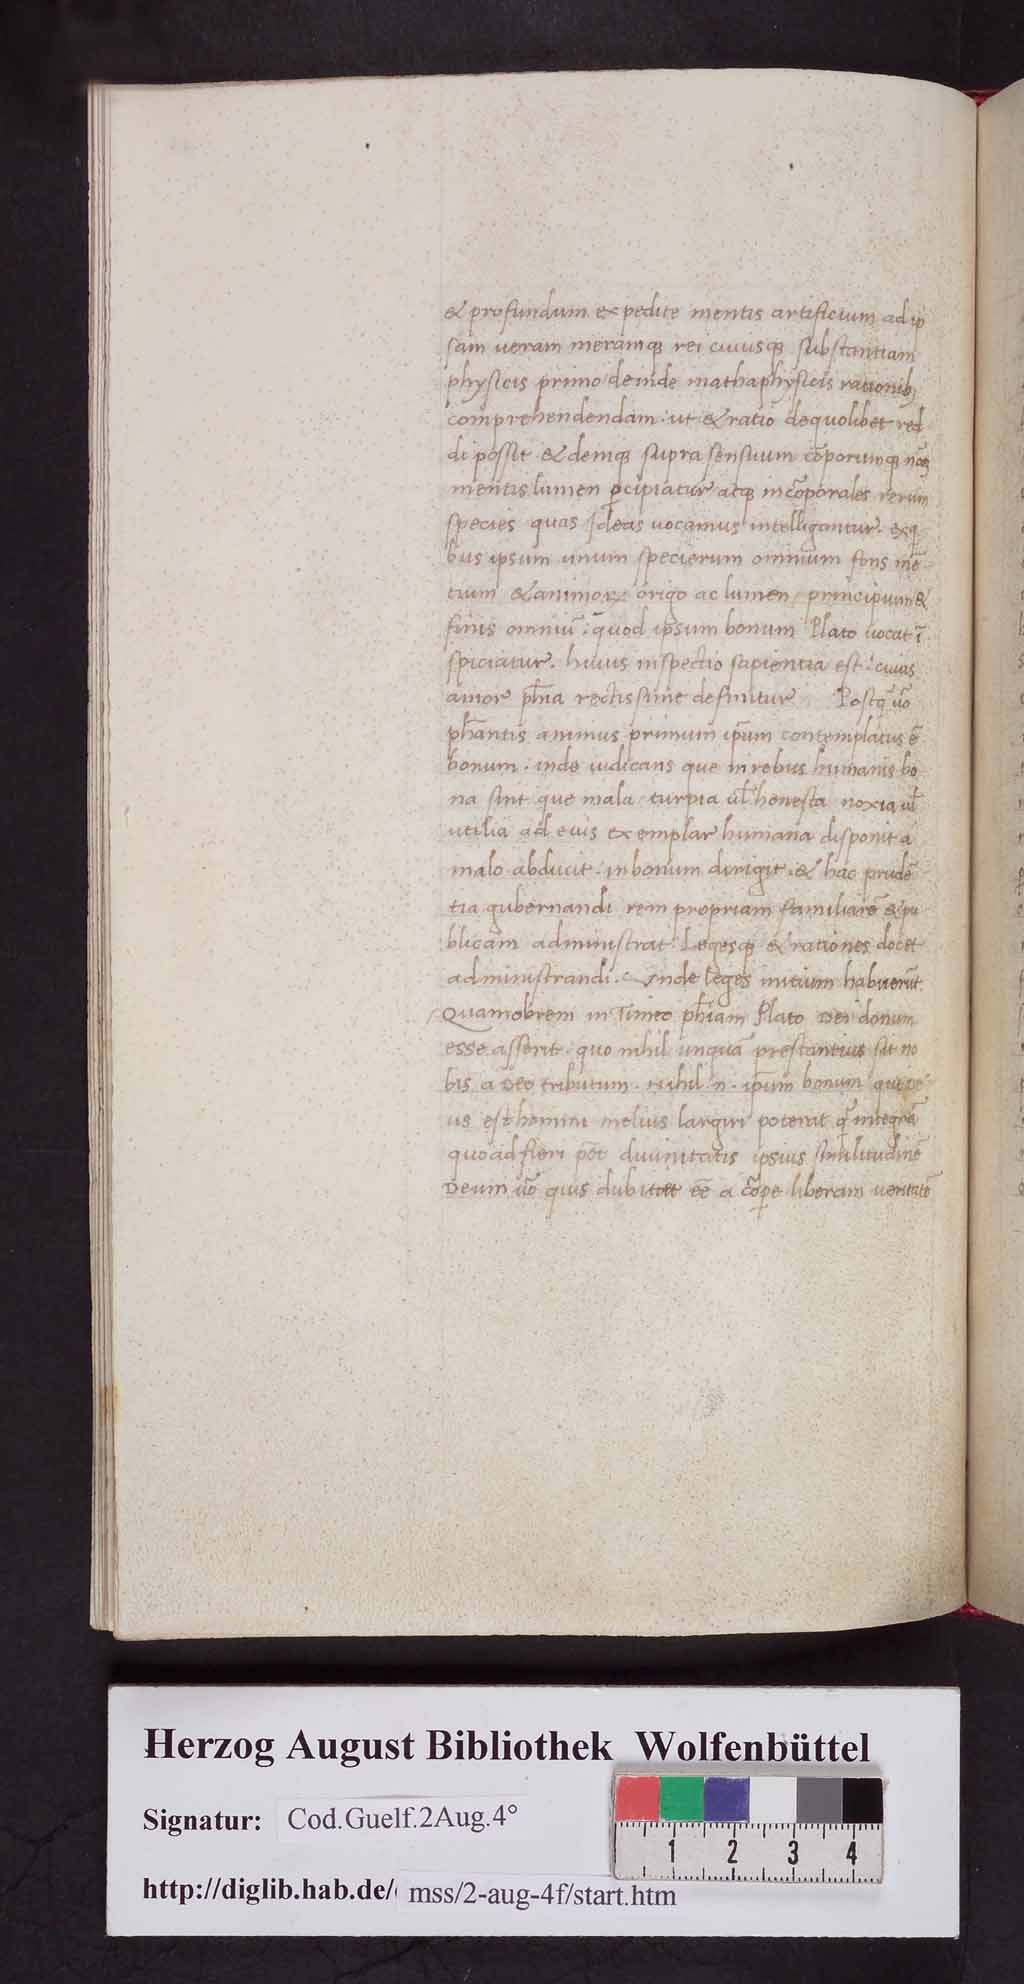 & profundum expedite mentis artificium ad ip
sam ueram meramq; rei cuiusq; substantiam
physicis primo deinde mathaphysicis rationib;
comprehendendam: ut & ratio dequolibet red
di possit & deniq; supra sensuum corporumq;
mentis lumen pcipiatur atq; incorporales rerum
species quas Ideas uocamus intelligantur. exq
bus ipsum unum specierum omnium fons mē
tium & animoꝝ origo ac lumen / principium &
finis omniū: quod ipsum bonum Plato uocat ī
spiciatur. huius inspectio sapientia est: cuius
amor ph̄ia rectissime definitur Postq̄ ūo
ph̄antis animus primum ip̄um contemplatus ē
bonum. inde iudicans que in rebus humanis bo
na sint que mala / turpia ul̄ honesta noxia ul̄
utilia ad eius exemplar humana disponit a
malo abducit. in bonum dirigit. & hac prudē
tia gubernandi rem propriam familiarē & pu
blicam administrat. Legesq; & rationes docet
administrandi. Vnde leges initium habuerūt.
Quamobrem in Timeo ph̄iam Plato Dei donum
esse asserit. quo nihil unquā prestantius sit no
bis a Deo tributum. Nihil .n. ip̄um bonum qui de
us est homini melius largiri poterat q̄ integrā
quoad fieri pōt diuinitatis ipsius similitudinē
Deum ūo quis dubitat eē a cōrpe liberam ueritatē
Herzog August Bibliothek Wolfenbüttel
Signatur: Cod.Guelf.2Aug.4°
1 2 3 4
http://diglib.hab.de/ mss/2-aug-4f/start.htm